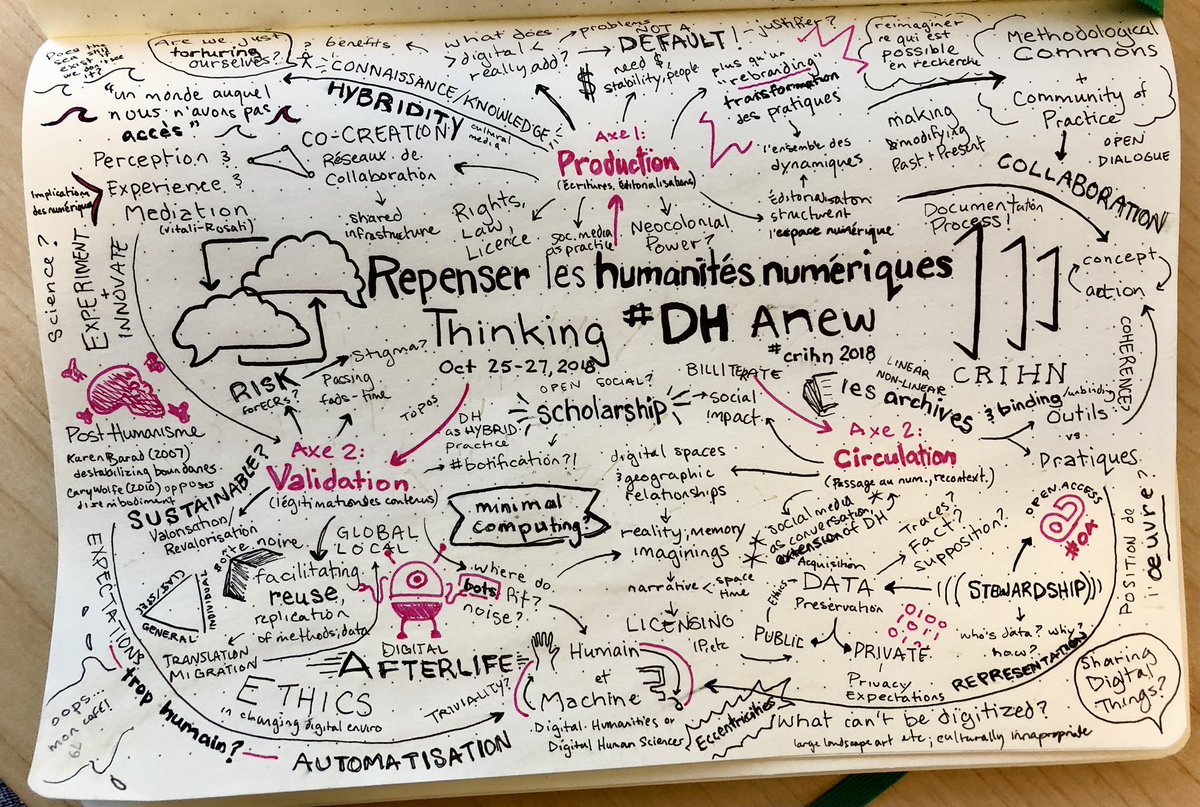 Does the sea exist if we digitize it?
Are we just
torturing
ourselves?
? benefits
what does
digital
really add?
problems
NOT A
DEFAULT!
justifier?
$
need $,
stability, people
plus qu'un
"rebranding
transformation
des pratiques
reimaginer
ce qui est
possible
en recherche
Methodological
Commons
+
Community of
Practice
OPEN
DIALOGUE
COLLABORATION
"un monde auquel
nous n'avons pas
accès"
CONNAISSANCE/KNOWLEDGE
HYBRIDITY
cultural
media
CO-CREATION
Réseaux de
Collaboration
shared
infrastructure
Perception &
Experience &
Mediation
(Vitali-Rosati)
Implications
des numérique
Axe 1:
Production
(Écritures, éditorialisations)
Rights,
Law,
Licence
soc. media
as practice
Neocolonial
Power?
l'ensemble des
dynamiques
Éditorialisation
structurent
l'espace numérique
making
& modifying
Past + Present
Documentation
Process!
concept
action
COHERENCE?
Science?
EXPERIMENT
+
INNOVATE
Repenser les humanités numériques
Thinking #DH Anew
Oct 25-27, 2018
#crihn 2018
CRIHN
RISK
for ECRs?
Stigma?
Passing
fads-time
TOPOS
OPEN SOCIAL?
scholarship
social
impact
BILLITERATE
LINEAR
NON-LINEAR
les archives
& binding/unbinding
Outils
vs
Pratiques
Post Humanisme
Karen Barad (2007)
destabilizing boundaries
Cary Wolfe (2010) opposes
disembodiment
SUSTAINABLE?
Valorisation/
Revalorisation
Axe 2:
Validation
(légitimation des contenus)
DH
as HYBRID
practice
#botification?!
digital spaces
& geographic
relationships
Axe 2:
Circulation
(Passage au num., recontext.)
minimal
computing?
reality, memory
imaginings
narrative
space
time
social media
as conversation,
extension of DH
Traces?
Fact?
Supposition?
OPEN ACCESS
#OA
POSITION de
l'oeuvre?
EXPECTATIONS
boite noire
GENERAL
GLOBAL
LOCAL
facilitating
reuse,
replication
of methods, data
TRANSLATION
MIGRATION
where do
bots fit?
noise?
DIGITAL
AFTERLIFE
LICENSING
IP etc
Acquisition
DATA
Preservation
Ethics
PUBLIC
PRIVATE
Privacy
Expectations
0100
1011
STEWARDSHIP
who's data? why?
how?
REPRESENTATION
Sharing
Digital
Things?
oops...
mon café!
trop humain?
ETHICS
in changing digital enviro
AUTOMATISATION
TRIVIALITY?
Humain
et
Machine
Digital Humanities or
Digital Human Sciences
Eccentricities
What can't be digitized?
large landscape art etc; culturally innapropriate